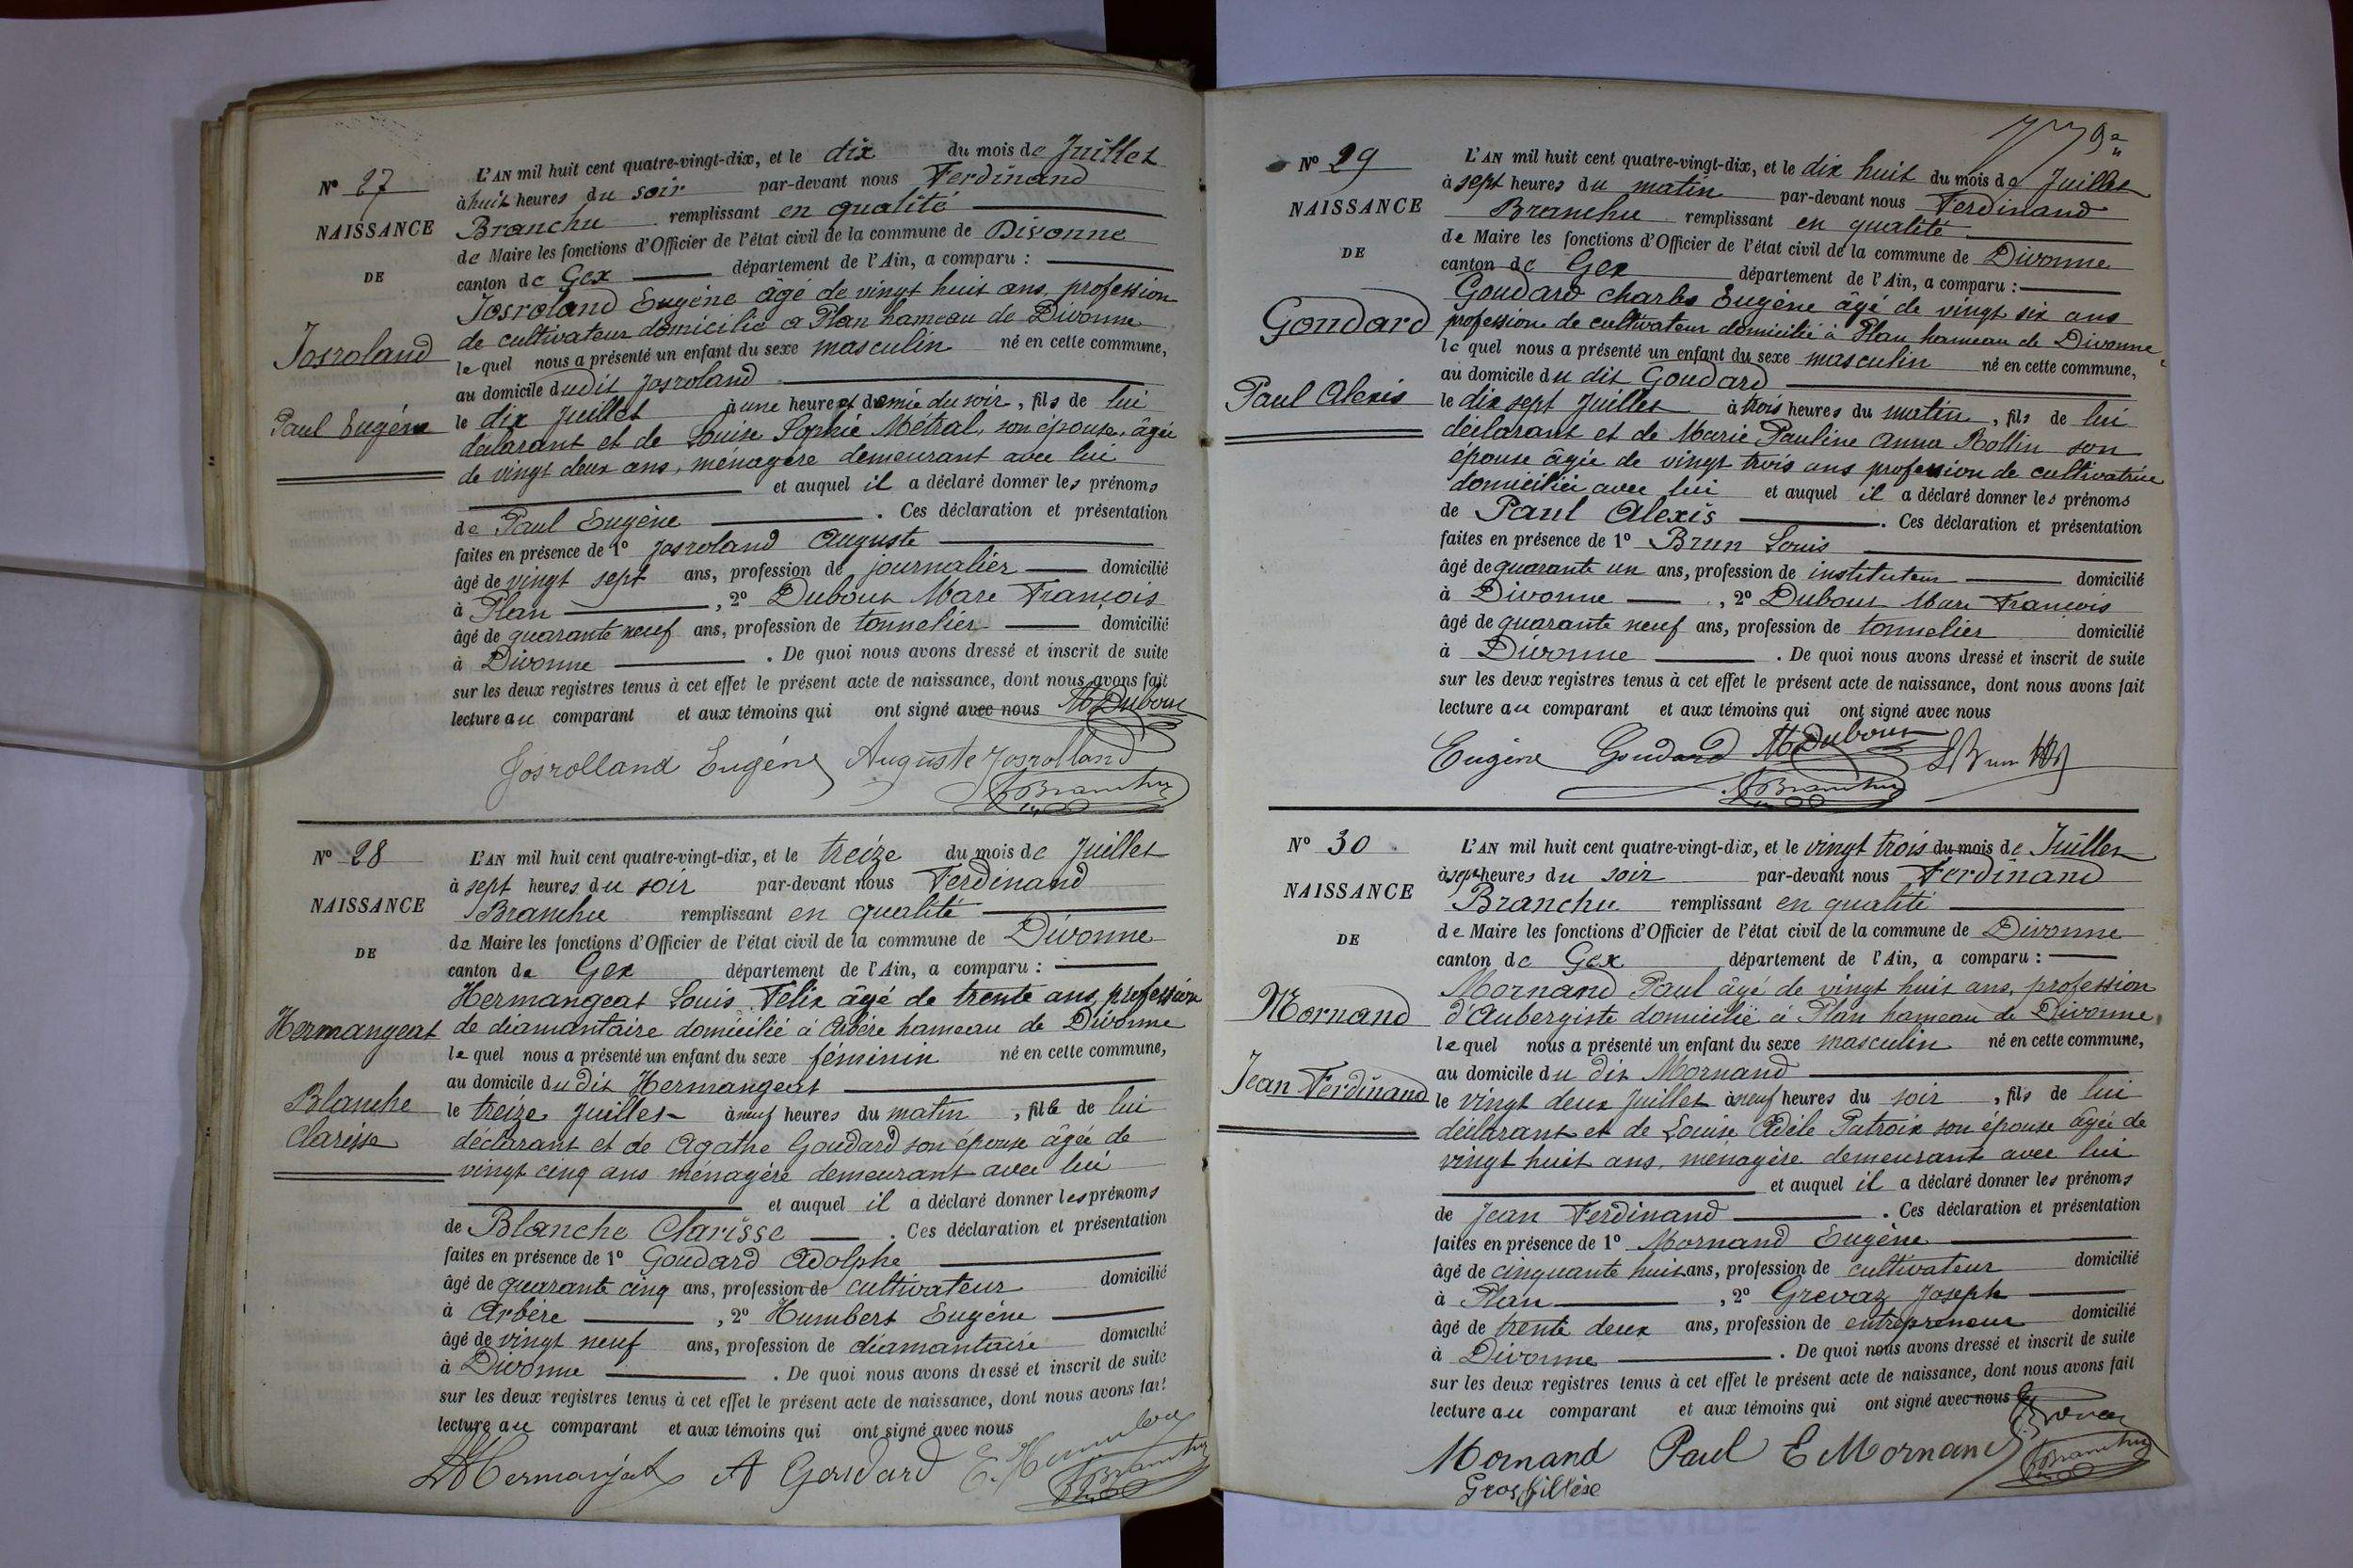 N° 27
NAISSANCE
DE
Josroland
Paul Eugène
L'AN mil huit cent quatre-vingt-dix, et le dix du mois de Juillet
à huit heures du soir par-devant nous Ferdinand
Branchu remplissant en qualité
de Maire les fonctions d'Officier de l'état civil de la commune de Divonne
canton de Gex département de l'Ain, a comparu :
Josroland Eugène âgé de vingt huit ans, profession
de cultivateur domicilié à Plan hameau de Divonne
lequel nous a présenté un enfant du sexe masculin né en cette commune,
au domicile dudit Josroland
le dix Juillet à une heure et demie du soir, fils de lui
déclarant et de Louise Sophie Métral, son épouse, âgée
de vingt deux ans, ménagère demeurant avec lui
et auquel il a déclaré donner les prénoms
de Paul Eugène . Ces déclaration et présentation
faites en présence de 1° Josroland Auguste
âgé de vingt sept ans, profession de journalier domicilié
à Plan , 2° Dubout Marc François
âgé de quarante neuf ans, profession de tonnelier domicilié
à Divonne . De quoi nous avons dressé et inscrit de suite
sur les deux registres tenus à cet effet le présent acte de naissance, dont nous avons fait
lecture au comparant et aux témoins qui ont signé avec nous MDubout
Josrolland Eugène Auguste Josrolland
FBranchu
N° 28
NAISSANCE
DE
Hermangeat
Blanche
Clarisse
L'AN mil huit cent quatre-vingt-dix, et le treize du mois de Juillet
à sept heures du soir par-devant nous Ferdinand
Branchu remplissant en qualité
de Maire les fonctions d'Officier de l'état civil de la commune de Divonne
canton de Gex département de l'Ain, a comparu :
Hermangeat Louis Félix âgé de trente ans, profession
de diamantaire domicilié à Arbère hameau de Divonne
lequel nous a présenté un enfant du sexe féminin né en cette commune,
au domicile du dit Hermangeat
le treize Juillet à neuf heures du matin , fille de lui
déclarant et de Agathe Goudard son épouse âgée de
vingt cinq ans ménagère demeurant avec lui
et auquel il a déclaré donner les prénoms
de Blanche Clarisse . Ces déclaration et présentation
faites en présence de 1° Goudard Adolphe
âgé de quarante cinq ans, profession de cultivateur domicilié
à Arbère , 2° Humbert Eugène
âgé de vingt neuf ans, profession de diamantaire domicilié
à Divonne . De quoi nous avons dressé et inscrit de suite
sur les deux registres tenus à cet effet le présent acte de naissance, dont nous avons fait
lecture au comparant et aux témoins qui ont signé avec nous
Hermanjat A Goudard E. Humbert
FBranchu
N° 29
NAISSANCE
DE
Goudard
Paul Alexis
L'AN mil huit cent quatre-vingt-dix, et le dix huit du mois de Juillet
à sept heures du matin par-devant nous Ferdinand
Branchu remplissant en qualité
de Maire les fonctions d'Officier de l'état civil de la commune de Divonne
canton de Gex département de l'Ain, a comparu :
Goudard Charles Eugène âgé de vingt six ans
profession de cultivateur domicilié à Plan hameau de Divonne
lequel nous a présenté un enfant du sexe masculin né en cette commune,
au domicile du dit Goudard
le dix sept Juillet à trois heures du matin , fils de lui
déclarant et de Marie Pauline Anna Rollin son
épouse âgée de vingt trois ans profession de cultivatrice
domiciliée avec lui et auquel il a déclaré donner les prénoms
de Paul Alexis . Ces déclaration et présentation
faites en présence de 1° Brun Louis
âgé de quarante un ans, profession de instituteur domicilié
à Divonne , 2° Dubout Marc François
âgé de quarante neuf ans, profession de tonnelier domicilié
à Divonne . De quoi nous avons dressé et inscrit de suite
sur les deux registres tenus à cet effet le présent acte de naissance, dont nous avons fait
lecture au comparant et aux témoins qui ont signé avec nous
Eugène Goudard MDubout LBrun
FBranchu
N° 30
NAISSANCE
DE
Mornand
Jean Ferdinand
L'AN mil huit cent quatre-vingt-dix, et le vingt trois du mois de Juillet
à sept heures du soir par-devant nous Ferdinand
Branchu remplissant en qualité
de Maire les fonctions d'Officier de l'état civil de la commune de Divonne
canton de Gex département de l'Ain, a comparu :
Mornand Paul âgé de vingt huit ans, profession
d'Aubergiste domicilié à Plan hameau de Divonne,
lequel nous a présenté un enfant du sexe masculin né en cette commune,
au domicile du dit Mornand
le vingt deux Juillet à neuf heures du soir , fils de lui
déclarant et de Louise Adèle Patroix son épouse âgée de
vingt huit ans, ménagère demeurant avec lui
et auquel il a déclaré donner les prénoms
de Jean Ferdinand . Ces déclaration et présentation
faites en présence de 1° Mornand Eugène
âgé de cinquante huit ans, profession de cultivateur domicilié
à Plan , 2° Grevaz Joseph
âgé de trente deux ans, profession de entrepreneur domicilié
à Divonne . De quoi nous avons dressé et inscrit de suite
sur les deux registres tenus à cet effet le présent acte de naissance, dont nous avons fait
lecture au comparant et aux témoins qui ont signé avec nous
Mornand Paul E Mornand
FBranchu